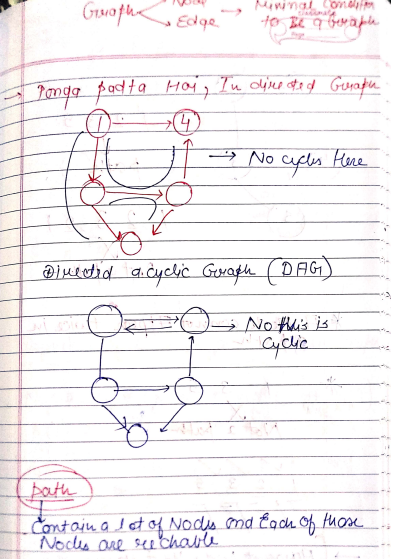 Graph
Node
Edge
→ Minimal Condition
to Be a Graph
→ Panga padta Hai, In directed Graph
1
4
→ No cycles Here
Directed a.cyclic Graph (DAG)
→ No this is
cyclic
path
Contain a lot of Nodes and Each of those
Nodes are reachable